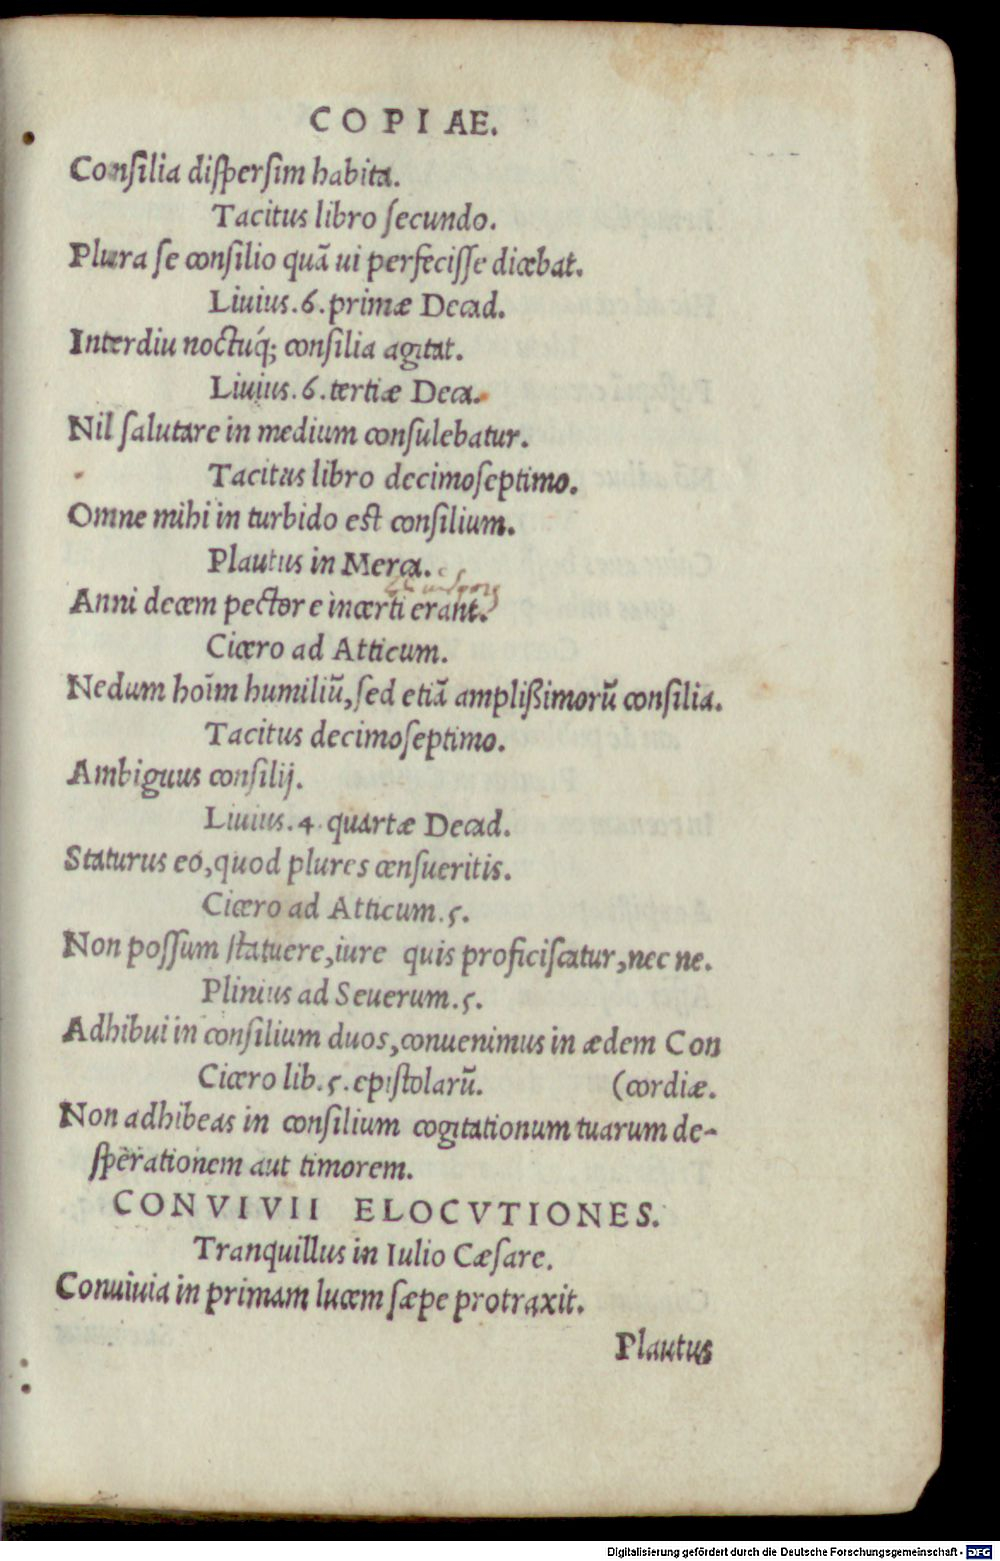 COPIAE.
Conſilia diſperſim habita.
Tacitus libro ſecundo.
Plura ſe conſilio quã ui perfeciſſe dicebat.
Liuius.6.primæ Decad.
Interdiu noctúq́; conſilia agitat.
Liuius.6.tertiæ Deca.
Nil ſalutare in medium conſulebatur.
Tacitus libro decimoſeptimo.
Omne mihi in turbido eſt conſilium.
Plautus in Merca.
Anni decem pectore incerti erant.
Cicero ad Atticum.
Nedum hoīm humiliũ,ſed etiã ampliſſimorũ conſilia.
Tacitus decimoſeptimo.
Ambiguus conſilij.
Liuius.4.quartæ Decad.
Staturus eo,quod plures cenſueritis.
Cicero ad Atticum.5.
Non poſſum ſtatuere,iure quis proficiſcatur,nec ne.
Plinius ad Seuerum.5.
Adhibui in conſilium duos,conuenimus in ædem Con
Cicero lib.5.epiſtolarũ. (cordiæ.
Non adhibeas in conſilium cogitationum tuarum de-
ſperationem aut timorem.
CONVIVII ELOCVTIONES.
Tranquillus in Iulio Cæſare.
Conuiuia in primam lucem ſæpe protraxit.
Plautus
Digitalisierung gefördert durch die Deutsche Forschungsgemeinschaft - DFG